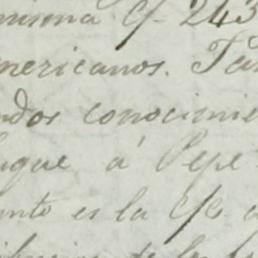 misma C/- 243
mericanos. Ta
ndos conocimie
igue á Pepe
ento es la C/C a